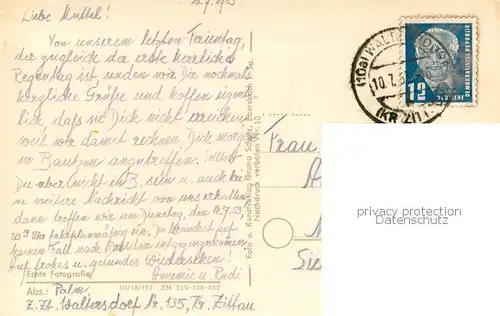 10.7.1953
Liebe Muttel!
Von unserem letzten Ferientag,
der zugleich der erste herrliche
Regentag ist senden wir Dir nochmals
herzliche Grüße und hoffen eigent-
lich, daß sie Dich nicht erreichen
weil wir damit rechnen, Dich morgen
in Bautzen anzutreffen. Solltest
Du aber nicht in B. sein u. auch kei-
ne weitere Nachricht von uns erhalten,
dann treffen wir am Dienstag, den 14.7.53
Uhr fahrplanmäßig ein. Du brauchst auf
keinen Fall nach entgegenkommen
Auf frohes u. gesundes Wiedersehen!
Annemie u. Rudi
Echte Fotografie
Abs.: Palm
Z. Zt. Waltersdorf Nr. 135, Kr. Zittau
III/18/197 ZM 219-108-652
Foto u. Kunstverlag Bruno Scholz, Ebersbach i. Sa.
Nachdruck verboten Nr. 10
(10a) WALTERSDORF
10.7.5
(KR ZITTAU)
12
DEUTSCHE
DEMOKRATISCHE REPUBLIK
Frau
protected by copyright
www.oldthing.de